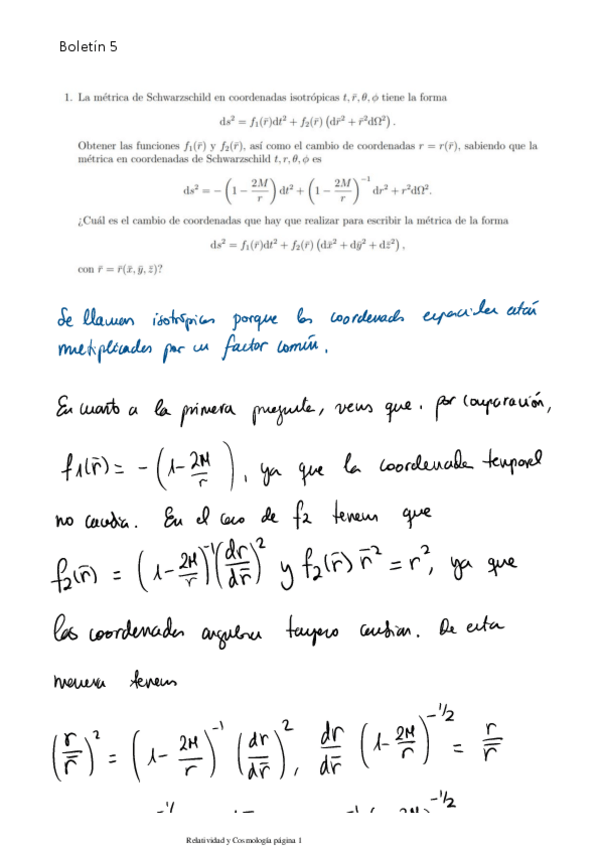 Boletín 5
1. La métrica de Schwarzschild en coordenadas isotrópicas t, r̄, θ, φ tiene la forma
ds² = f₁(r̄)dt² + f₂(r̄) (dr̄² + r̄²dΩ²) .
Obtener las funciones f₁(r̄) y f₂(r̄), así como el cambio de coordenadas r = r(r̄), sabiendo que la
métrica en coordenadas de Schwarzschild t, r, θ, φ es
ds² = − (1 − 2M/r) dt² + (1 − 2M/r)⁻¹ dr² + r²dΩ².
¿Cuál es el cambio de coordenadas que hay que realizar para escribir la métrica de la forma
ds² = f₁(r̄)dt² + f₂(r̄) (dx̄² + dȳ² + dz̄²) ,
con r̄ = r̄(x̄, ȳ, z̄)?
Se llaman isotrópicas porque las coordenadas espaciales están
multiplicadas por un factor común.
En cuanto a la primera pregunta, vemos que, por comparación,
f₁(r̄) = − (1 − 2M/r), ya que la coordenada temporal
no cambia. En el caso de f₂ tenemos que
f₂(r̄) = (1 − 2M/r)⁻¹ (dr/dr̄)² y f₂(r̄) r̄² = r², ya que
las coordenadas angulares tampoco cambian. De esta
manera tenemos
(r/r̄)² = (1 − 2M/r)⁻¹ (dr/dr̄)², dr/dr̄ (1 − 2M/r)^(−1/2) = r/r̄
Relatividad y Cosmología página 1